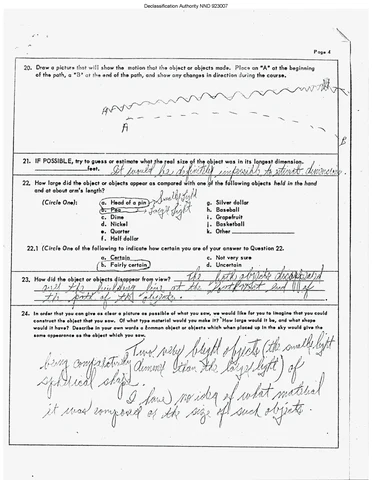 Declassification Authority NND 923007
Page 4
20. Draw a picture that will show the motion that the object or objects made. Place an "A" at the beginning
of the path, a "B" at the end of the path, and show any changes in direction during the course.
A
B
A
B
21. IF POSSIBLE, try to guess or estimate what the real size of the object was in its longest dimension.
feet. It would be definitely impossible to estimate dimensions.
22. How large did the object or objects appear as compared with one of the following objects held in the hand
and at about arm's length?
(Circle One): a. Head of a pin Small light g. Silver dollar
b. Pea Large light h. Baseball
c. Dime i. Grapefruit
d. Nickel j. Basketball
e. Quarter k. Other
f. Half dollar
22.1 (Circle One of the following to indicate how certain you are of your answer to Question 22.
a. Certain c. Not very sure
b. Fairly certain d. Uncertain
23. How did the object or objects disappear from view? The both objects disappeared
the building line at the Southwest end of
the path of the
24. In order that you can give as clear a picture as possible of what you saw, we would like for you to imagine that you could
construct the object that you saw. Of what type material would you make it? How large would it be, and what shape
would it have? Describe in your own words a common object or objects which when placed up in the sky would give the
same appearance as the object which you saw.
Two very bright objects (the smaller light
being comparatively dimmer than the large light) of
spherical shape.
I have no idea of what material
it was composed or the size of such objects.